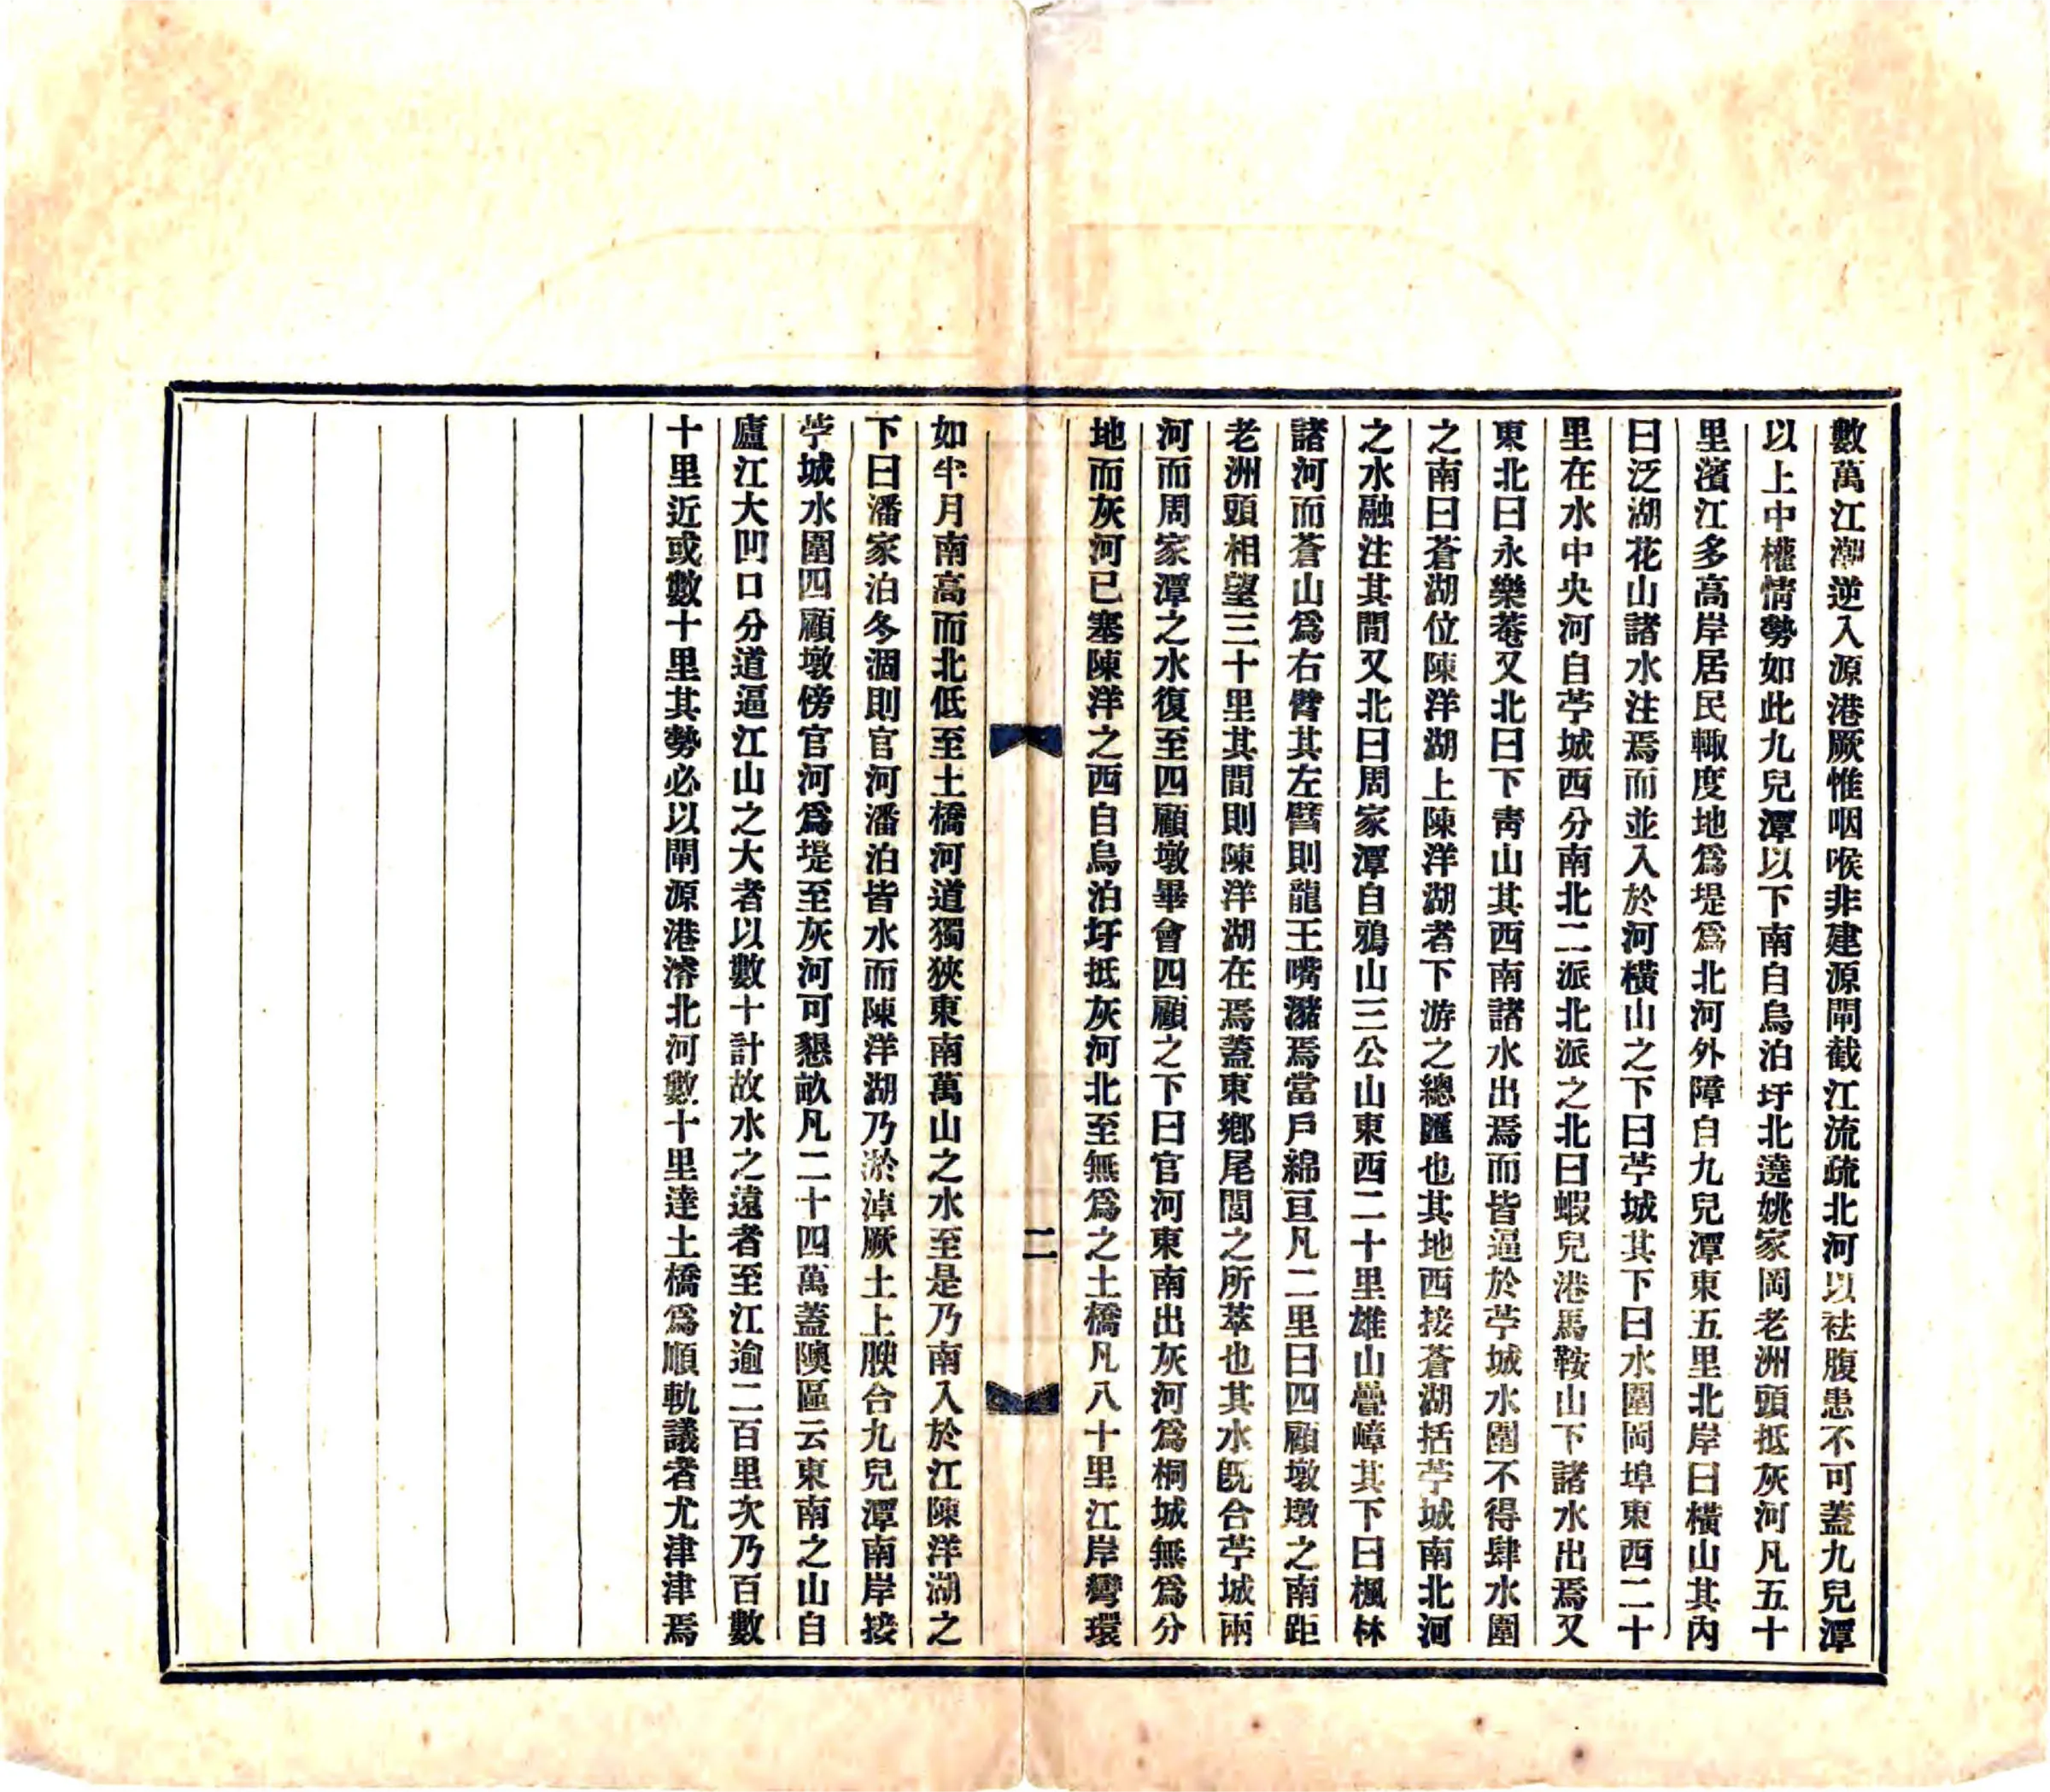 數萬江潮逆入源港厥惟咽喉非建源閘截江流疏北河以祛腹患不可蓋九兒潭
以上中權情勢如此九兒潭以下南自烏泊圩北遶姚家岡老洲頭抵灰河凡五十
里濱江多高岸居民輙度地爲堤爲北河外障自九兒潭東五里北岸曰橫山其內
曰泛湖花山諸水注焉而並入於河橫山之下曰苧城其下曰水圍岡埠東西二十
里在水中央河自苧城西分南北二派北派之北曰蝦兒港馬鞍山下諸水出焉又
東北曰永樂菴又北曰下靑山其西南諸水出焉而皆逼於苧城水圍不得肆水圍
之南曰蒼湖位陳洋湖上陳洋湖者下游之總匯也其地西接蒼湖括苧城南北河
之水融注其間又北曰周家潭自鴉山三公山東西二十里雄山疊嶂其下曰楓林
諸河而蒼山爲右臂其左臂則龍王嘴瀦焉當戶綿亘凡二里曰四顧墩墩之南距
老洲頭相望三十里其間則陳洋湖在焉蓋東鄉尾閭之所萃也其水旣合苧城兩
河而周家潭之水復至四顧墩畢會四顧之下曰官河東南出灰河爲桐城無爲分
地而灰河已塞陳洋之西自烏泊圩抵灰河北至無爲之土橋凡八十里江岸灣環
二
如半月南高而北低至土橋河道獨狹東南萬山之水至是乃南入於江陳洋湖之
下曰潘家泊冬涸則官河潘泊皆水而陳洋湖乃淤淖厥土上腴合九兒潭南岸接
苧城水圍四顧墩傍官河爲堤至灰河可懇畝凡二十四萬蓋隩區云東南之山自
廬江大凹口分道逼江山之大者以數十計故水之遠者至江逾二百里次乃百數
十里近或數十里其勢必以閘源港濬北河數十里達土橋爲順軌議者尤津津焉